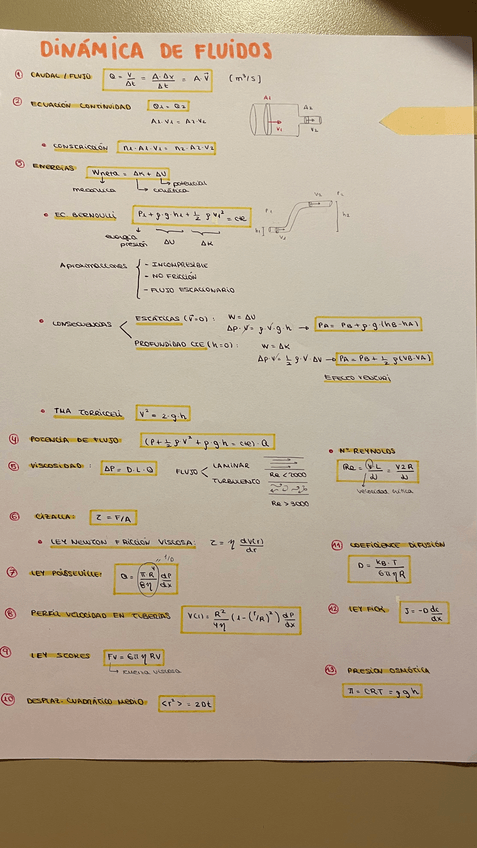 DINÁMICA DE FLUIDOS
① CAUDAL / FLUJO Q = V/Δt = A·Δv/Δt = A·V̄ [m³/s]
② ECUACIÓN CONTINUIDAD Q1 = Q2
A1·V1 = A2·V2
A1 V1 A2 V2
• CONSTRICCIÓN n1·A1·V1 = n2·A2·V2
③ ENERGÍAS Wneta = ΔK + ΔU
mecánica cinética potencial
• EC. BERNOUILLI P1 + ρ·g·h1 + ½ ρ V1² = cte
energía presión ΔU ΔK
P1 h1 V1 V2 P2 h2
Aproximaciones
- INCOMPRESIBLE
- NO FRICCIÓN
- FLUJO ESTACIONARIO
• CONSECUENCIAS
ESTÁTICAS (V=0): W = ΔU
ΔP·V = ρ·V·g·h → PA = PB + ρ·g·(hB-hA)
PROFUNDIDAD CTE (h=0): W = ΔK
ΔP·V = ½ ρ·V·ΔV → PA = PB + ½ ρ(VB-VA)
EFECTO VENTURI
• TMA TORRICELLI V² = 2·g·h
④ POTENCIA DE FLUJO (P + ½ ρ·V² + ρ·g·h = cte)·Q
⑤ VISCOSIDAD: ΔP = D·L·Q FLUJO
LAMINAR Re < 2000
TURBULENTO Re > 3000
• Nº REYNOLDS
velocidad crítica
⑥ CIZALLA: τ = F/A
• LEY NEWTON FRICCIÓN VISCOSA: τ = η dV(r)/dr
⑦ LEY POISSEUILLE: Q = π·R⁴/8η dP/dx
⑧ PERFIL VELOCIDAD EN TUBERÍAS V(r) = R²/4η (1 - (r/R)²) dP/dx
⑨ LEY STOKES FV = 6π η RV
→ FUERZA VISCOSA
⑩ DESPLAZ. CUADRÁTICO MEDIO <r²> = 2Dt
⑪ COEFICIENTE DIFUSIÓN
D = KB·T/6πηR
⑫ LEY FICK J = -D dc/dx
⑬ PRESIÓN OSMÓTICA
π = CRT = ρgh